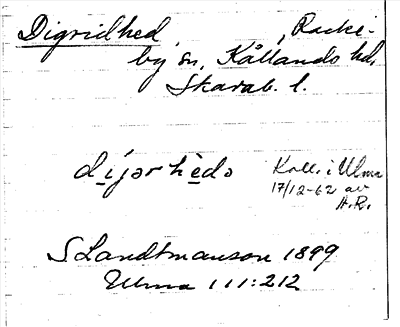 Digridhed, Racke-
by sn, Kållands hd,
Skarab. l.
díjərhèdə
Koll. i Ulma
17/12-62 av
H.R.
S Landtmanson 1899
Ulma 111:212